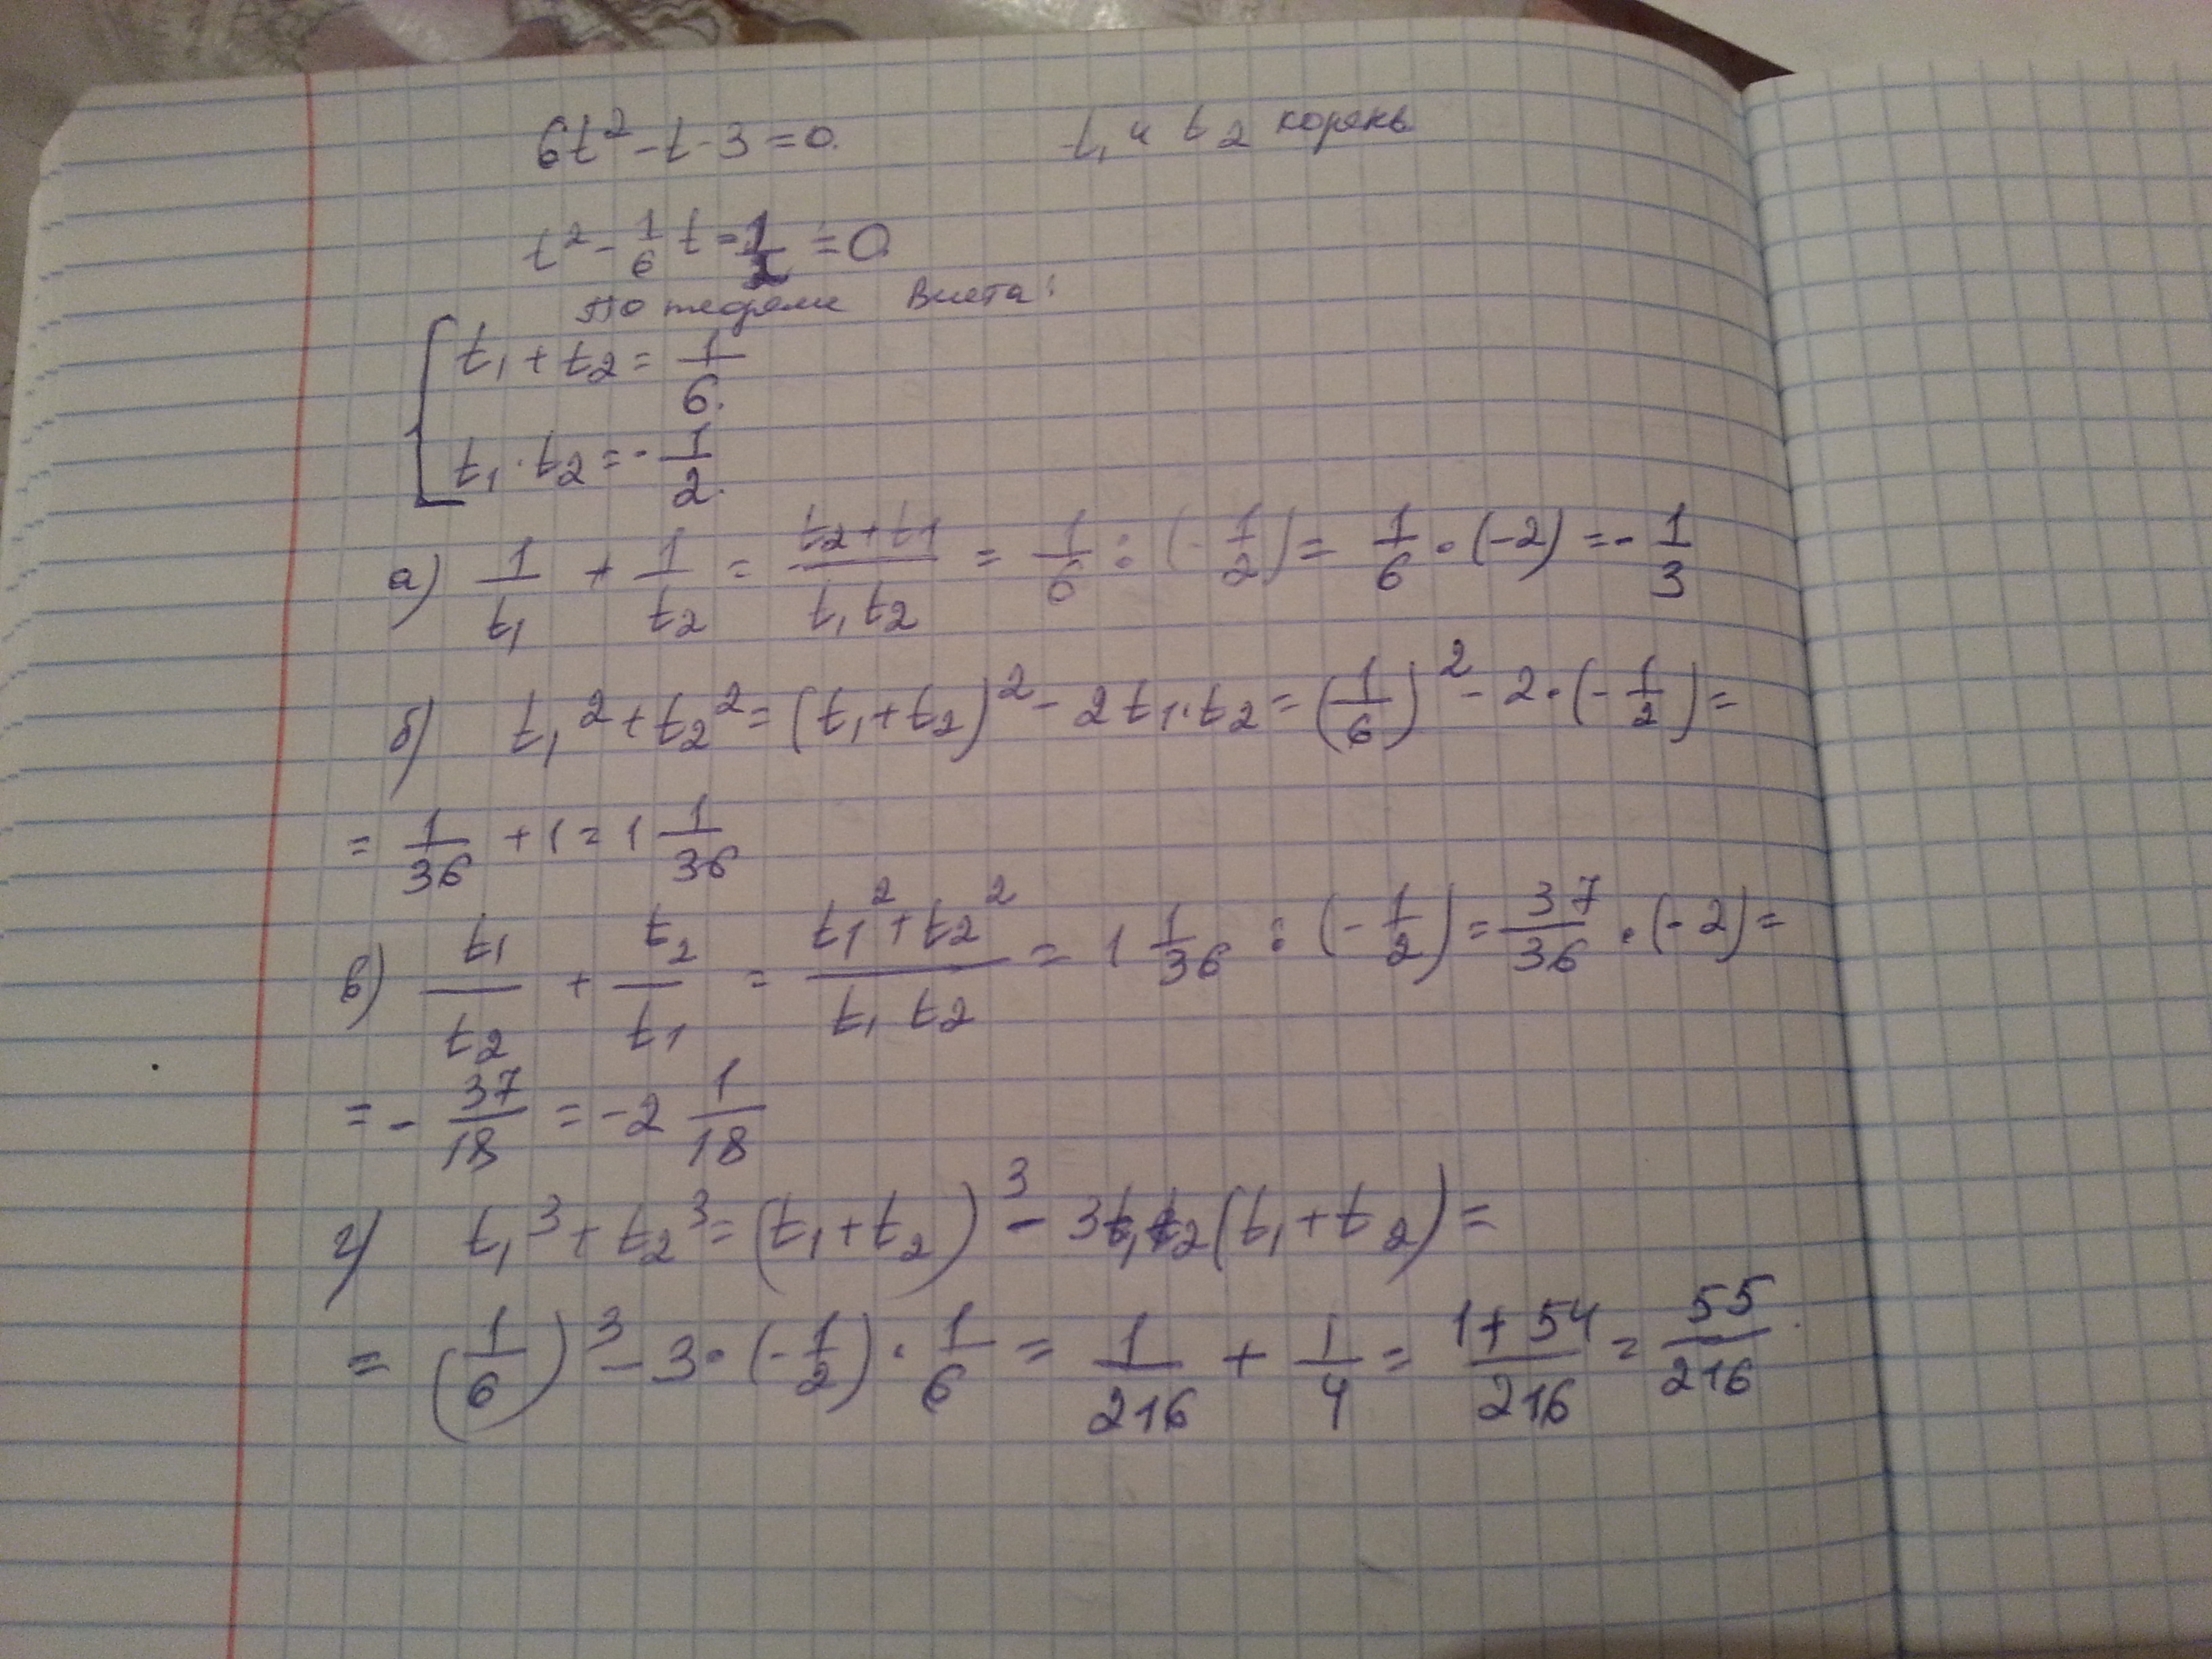 6t² - t - 3 = 0. t₁ и t₂ корень
t² - 1/6 t - 1/2 = 0.
по теореме Виета:
t₁ + t₂ = 1/6.
t₁ · t₂ = - 1/2.
а) 1/t₁ + 1/t₂ = (t₂ + t₁)/(t₁ t₂) = 1/6 : (- 1/2) = 1/6 · (-2) = - 1/3
б) t₁² + t₂² = (t₁ + t₂)² - 2t₁ · t₂ = (1/6)² - 2 · (- 1/2) =
= 1/36 + 1 = 1 1/36
в) t₁/t₂ + t₂/t₁ = (t₁² + t₂²)/(t₁ t₂) = 1 1/36 : (- 1/2) = 37/36 · (-2) =
= - 37/18 = -2 1/18
г) t₁³ + t₂³ = (t₁ + t₂)³ - 3t₁t₂(t₁ + t₂) =
= (1/6)³ - 3 · (- 1/2) · 1/6 = 1/216 + 1/4 = (1 + 54)/216 = 55/216.